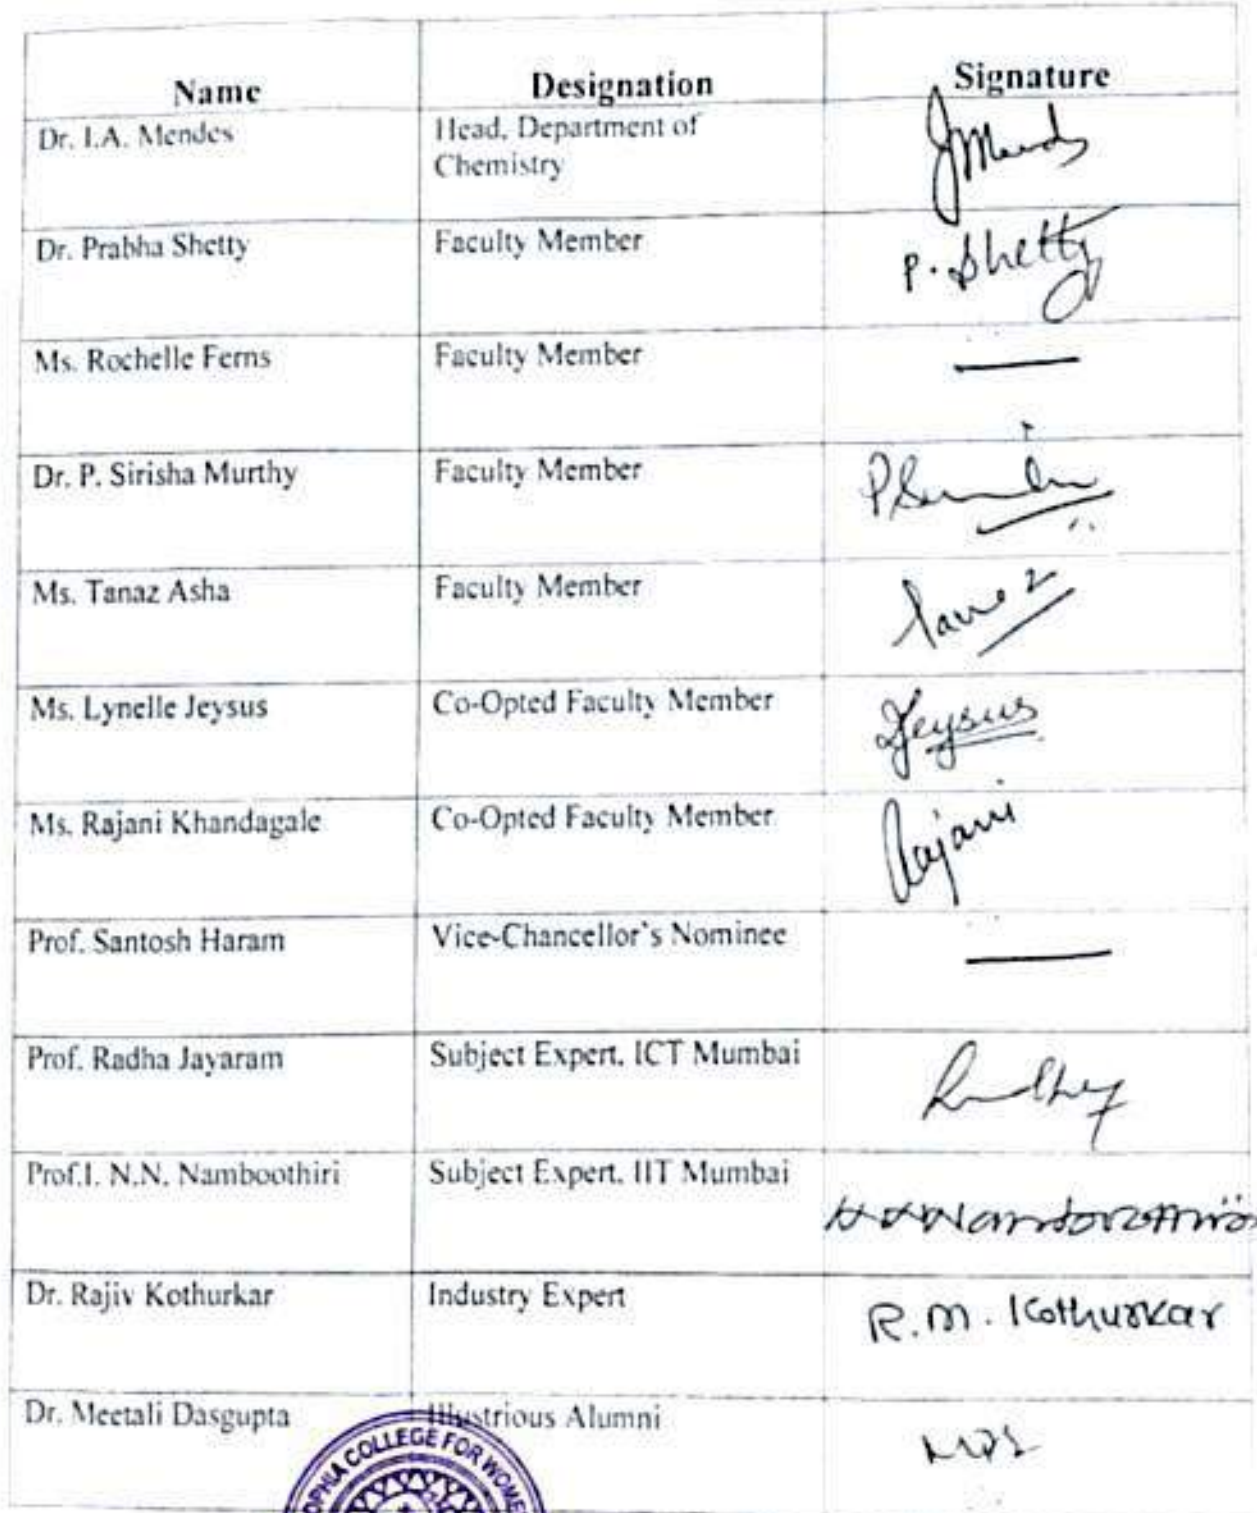 Name Designation Signature
Dr. I.A. Mendes Head, Department of
Chemistry
Dr. Prabha Shetty Faculty Member P. Shetty
Ms. Rochelle Ferns Faculty Member
Dr. P. Sirisha Murthy Faculty Member
Ms. Tanaz Asha Faculty Member
Ms. Lynelle Jeysus Co-Opted Faculty Member Jeysus
Ms. Rajani Khandagale Co-Opted Faculty Member Rajani
Prof. Santosh Haram Vice-Chancellor's Nominee
Prof. Radha Jayaram Subject Expert, ICT Mumbai
Prof.I. N.N. Namboothiri Subject Expert, IIT Mumbai
Dr. Rajiv Kothurkar Industry Expert R.M. Kothurkar
Dr. Meetali Dasgupta Illustrious Alumni
COLLEGE FOR